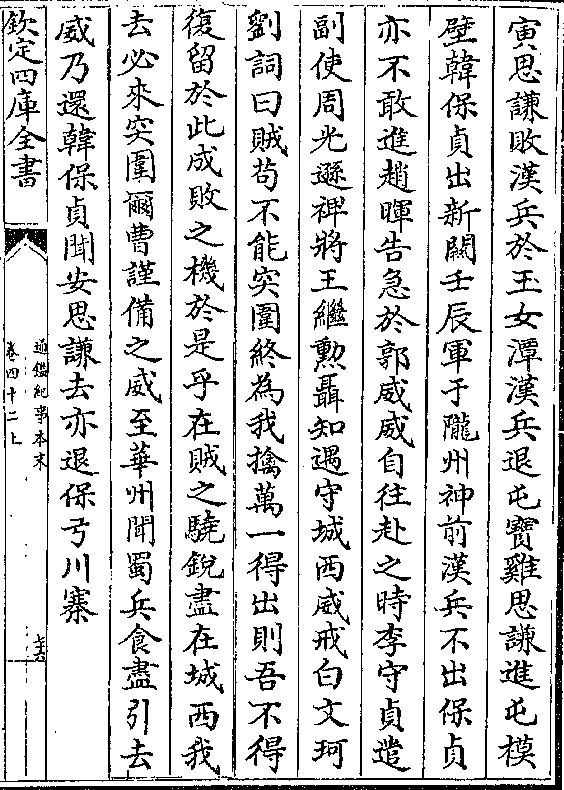 寅思謙敗漢兵於玉女潭漢兵退屯寶雞思謙進屯模
壁韓保貞出新關壬辰軍于隴州神前漢兵不出保貞
亦不敢進趙暉告急於郭威威自往赴之時李守貞遣
副使周光遜禆將王繼勲聶知遇守城西威戒白文珂
劉詞曰賊苟不能突圍終為我擒萬一得出則吾不得
復留於此成敗之機於是乎在賊之驍銳盡在城西我
去必來突圍爾曹謹備之威至華州聞蜀兵食盡引去
威乃還韓保貞聞安思謙去亦退保弓川寨
欽定四庫全書
通鑑紀事本末
卷四十二上